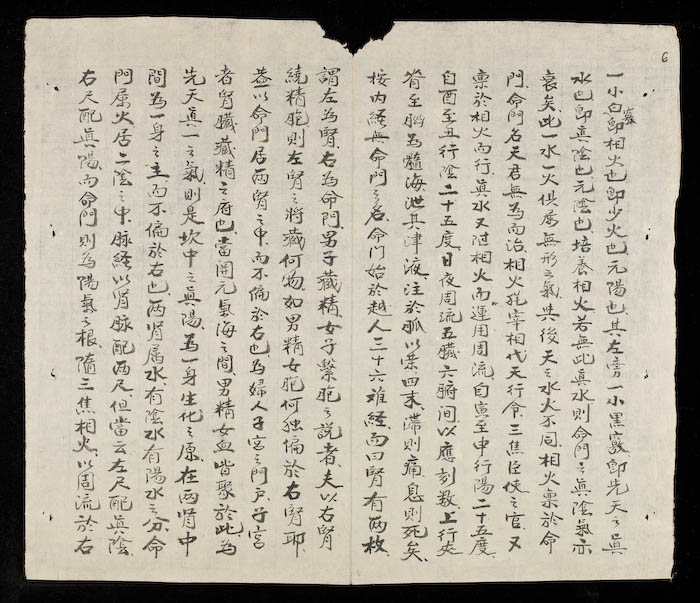 6
一小白竅即相火也即少火也元陽也其左旁一小黑竅即先天之眞
水也即眞陰也元陰也培養相火若無此眞水則命門之眞陰氣亦
衰矣此一水一火俱属無形之氣與後天之水火不同相火禀於命
門命門名天君無為而治相火猶宰相代天行令三焦臣使之官又
禀於相火而行眞水又随相火而運用周流自寅至申行陽二十五度
自酉至丑行陰二十五度日夜周流五臟六腑間以應刻数上行夾
脊至腦為髓海泄其津液注於脈以榮四末滯則痛息則死矣
按内經無命門之名命门始於越人三十六难経而曰腎有两枚
謂左為腎右為命門男子藏精女子繫胞之説者夫以右腎
繞精胞則左腎之將藏何物如男精女胞何独偏於右腎耶
益以命門居两腎之中而不偏於右也為婦人子宮之門户子宮
者腎臟藏精之府也當開元氣海之間男精女血皆聚於此為
先天眞一之氣則是坎中之眞陽為一身生化之原在两肾中
間為一身之主而不偏於右也两肾属水有陰水有陽水之分命
門属火居二陰之中脉経以肾脉配两尺但當云左尺配眞陰
右尺配眞陽而命門則為陽氣之根隨三焦相火以周流於右